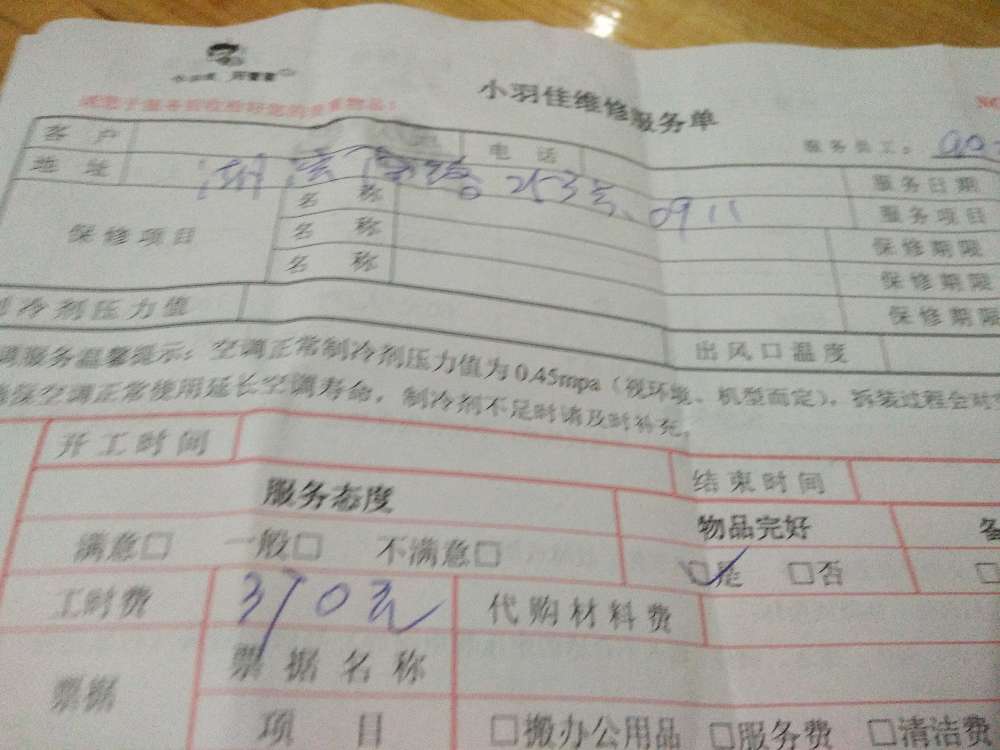 小羽佳维修服务单
客 户
电 话
服务员工：
地 址
253号、0911
服务日期
保修项目
名 称
服务项目
名 称
保修期限
名 称
保修期限
冷剂压力值
保修期限
出风口温度
调服务温馨提示：空调正常制冷剂压力值为0.45mpa（视环境、机型而定），拆装过程会对
保空调正常使用延长空调寿命，制冷剂不足时请及时补充。
开工时间
结束时间
服务态度
物品完好
满意□ 一般□ 不满意□
□是 □否
工时费
370元
代购材料费
票据
票据名称
项 目
□搬办公用品 □服务费 □清洁费